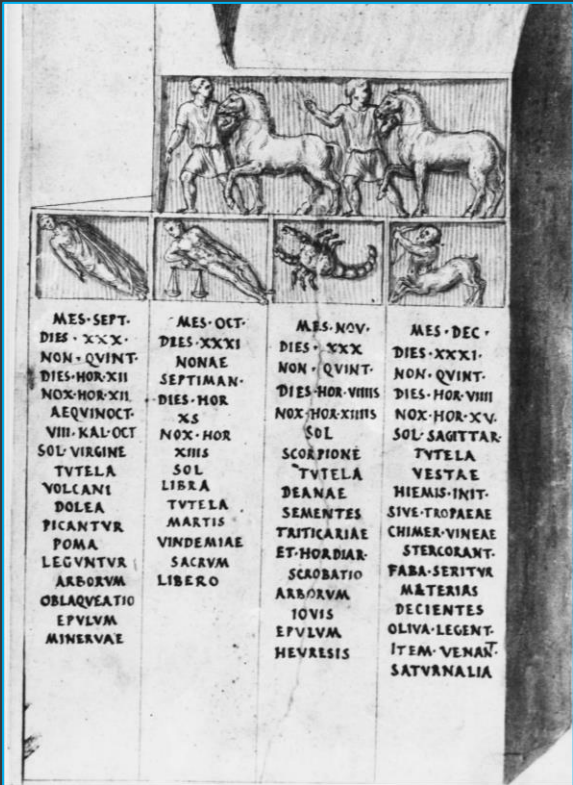 MES·SEPT·
DIES·XXX·
NON·QVINT·
DIES·HOR·XII
NOX·HOR·XII
AEQVINOCT·
VIII·KAL·OCT
SOL·VIRGINE
TVTELA
VOLCANI
DOLEA
PICANTVR
POMA
LEGVNTVR
ARBORVM
OBLAQVEATIO
EPVLVM
MINERVAE
MES·OCT·
DIES·XXXI
NONAE
SEPTIMAN·
DIES·HOR
XS
NOX·HOR
XIIIS
SOL
LIBRA
TVTELA
MARTIS
VINDEMIAE
SACRVM
LIBERO
MES·NOV·
DIES·XXX
NON·QVINT·
DIES·HOR·VIIIIS
NOX·HOR·XIIIIS
SOL
SCORPIONE
TVTELA
DEANAE
SEMENTES
TRITICARIAE
ET·HORDIAR·
SCROBATIO
ARBORVM
IOVIS
EPVLVM
HEVRESIS
MES·DEC·
DIES·XXXI·
NON·QVINT·
DIES·HOR·VIIII
NOX·HOR·XV·
SOL·SAGITTAR·
TVTELA
VESTAE
HIEMIS·INIT·
SIVE·TROPAEAE
CHIMER·VINEAE
STERCORANT·
FABA·SERITVR
MATERIAS
DECIENTES
OLIVA·LEGENT·
ITEM·VENANT
SATVRNALIA